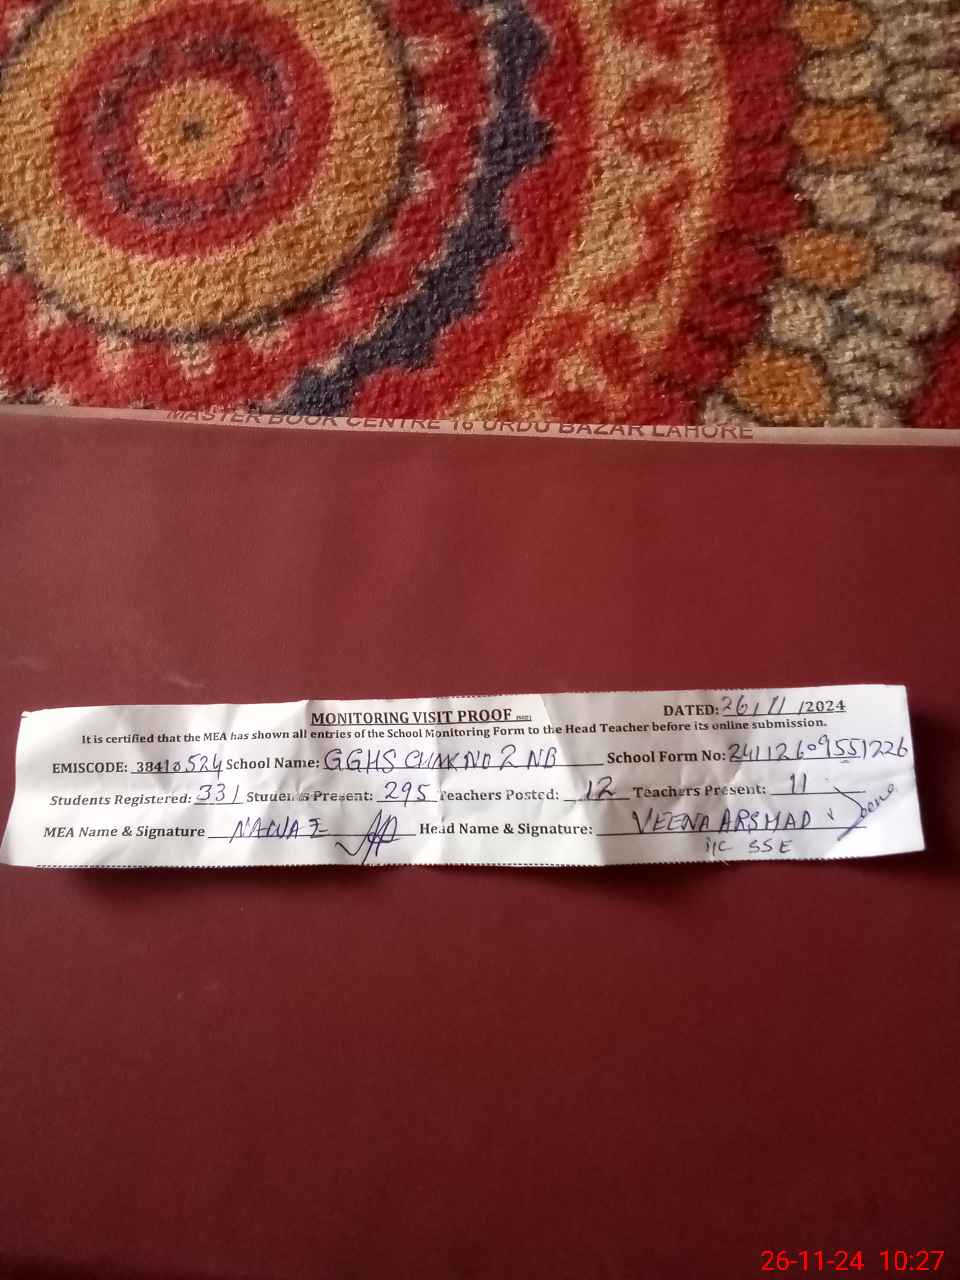 MASTER BOOK CENTRE 16 URDU BAZAR LAHORE
MONITORING VISIT PROOF
DATED: 26/11/2024
It is certified that the MEA has shown all entries of the School Monitoring Form to the Head Teacher before its online submission.
EMISCODE: 38410524 School Name: GGHS CHAK NO 2 NB School Form No: 24112609551226
Students Registered: 331 Students Present: 295 Teachers Posted: 12 Teachers Present: 11
MEA Name & Signature Head Name & Signature: VEENA ARSHAD
i/c SSE
26-11-24 10:27